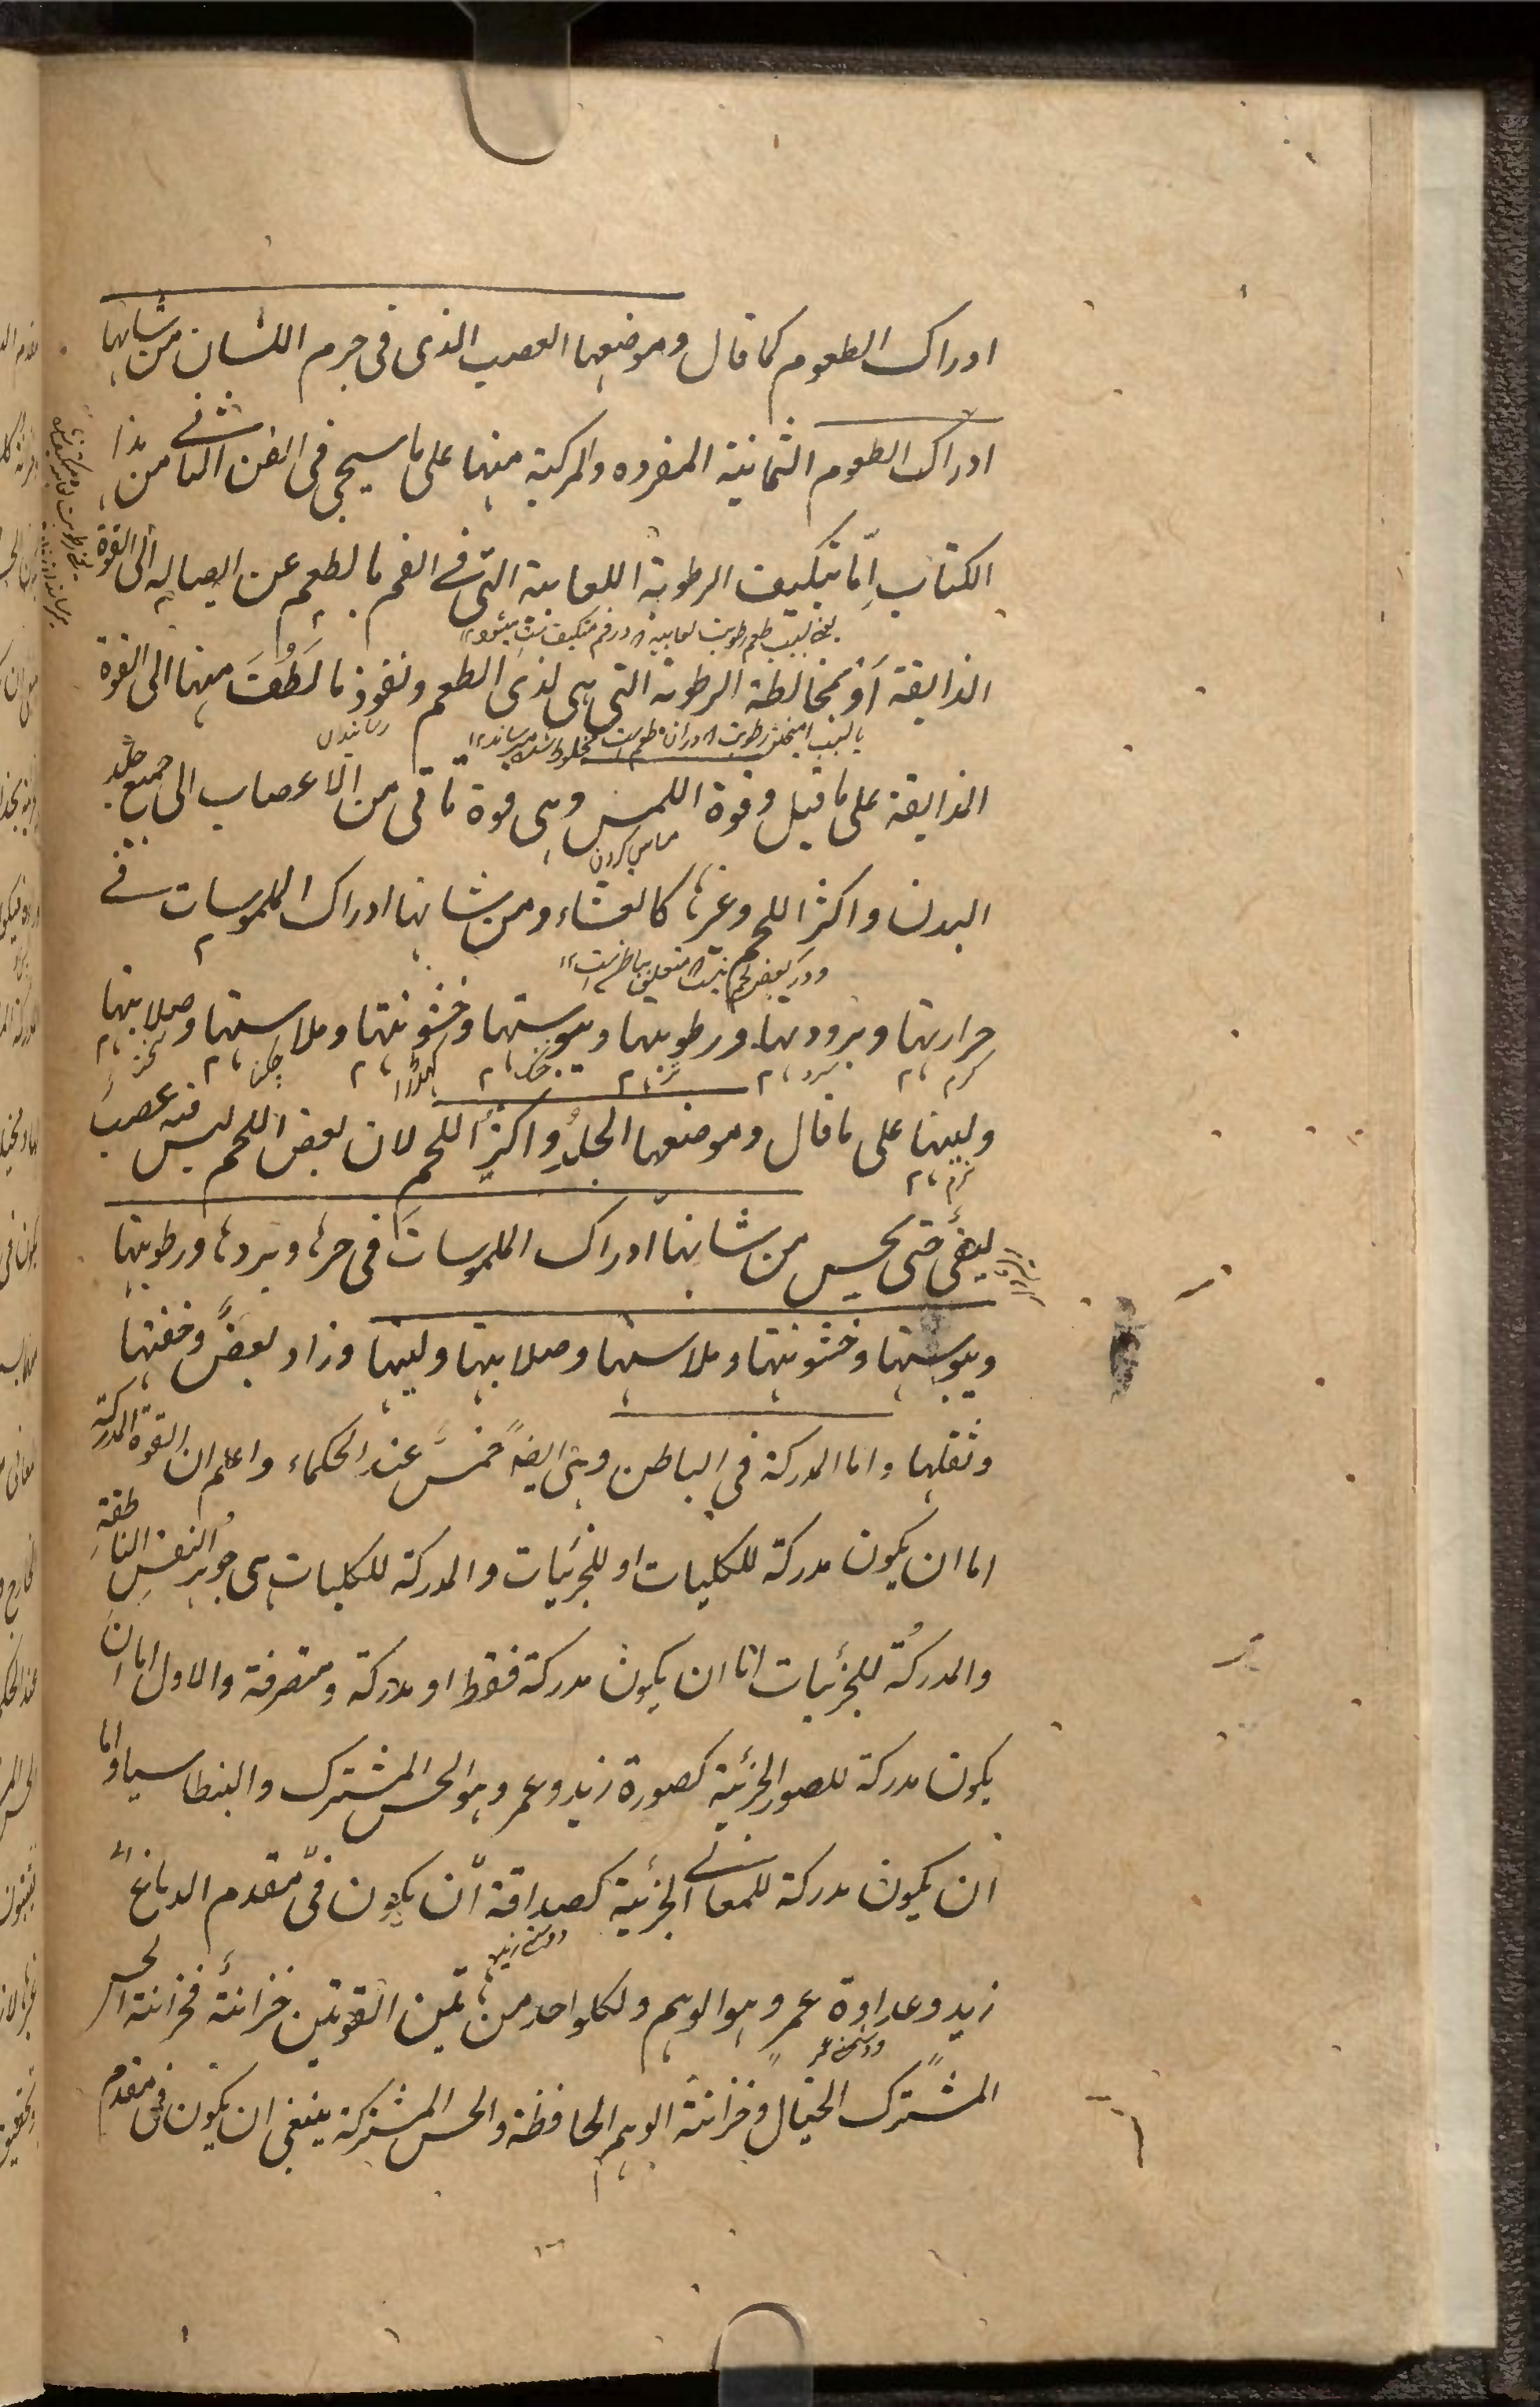 ادراك الطعوم كما قال وموضعها العصب الذى فى جرم اللسان من شانها
ادراك الطعوم الثمانية المفرده والمركبة منها على ما سيجى فى الفن الثامن فے هذا
الكتاب اِمّا بتكيف الرطوبة اللعابية التى فے الفم بالطعم عن ايصاله الى القوة
يعنے بسبب طعم رطوبت لعابيه در فم متكيف ميشود
الذايقة اَو بمخالطة الرطوبة التى هى لذى الطعم ونفوذ ما لَطُفَ منها الى القوة
الذايقة على ما قيل وقوة اللمس وهى قوة تاتى من الاعصاب الى جميع جلد
مماس كردن
البدن واكثر اللحم وغيرها كالغشاء ومن شانها ادراك الملموسات فے
حرارتها وبرودتها ورطوبتها ويبوستها وخشونتها وملاستها وصلابتها
گرم سرد تر خشك كهدڑا چكنا سخت
ولينها على ما قال وموضعها الجلدُ واكثرُ اللحم لان بعض اللحم ليس فيه عصب
نرم
ليفى حتى يحس من شانها ادراك الملموسات فى حرها وبردها ورطوبتها
ويبوستها وخشونتها وملاستها وصلابتها ولينها وزاد بعضٌ وخفتها
وثقلها واما المدركة فى الباطن وهى ايضاً خمسٌ عند الحكماء واعلم ان القوة المدركة
اما ان يكون مدركة للكليات او للجزئيات والمدركة للكليات هى جوهر النفس الناطقة
والمدركة للجزئيات اما ان يكون مدركة فقط او مدركة ومتصرفة والاول اما ان
يكون مدركة للصور الجزئية كصورة زيد وعمر وهو الحس المشترك والبنطاسيا واما
ان يكون مدركة للمعانے الجزئية كصداقة ان يكون فى مقدم الدماغ
دوستى زيد
زيد وعداوة عمر وهو الوهم ولكلواحد من تين القوتين خزانة فخزانة الحس
ودشمنى عمر
المشترك الخيال وخزانة الوهم الحافظة والحس المشتركة ينبغى ان يكون فى مقدم